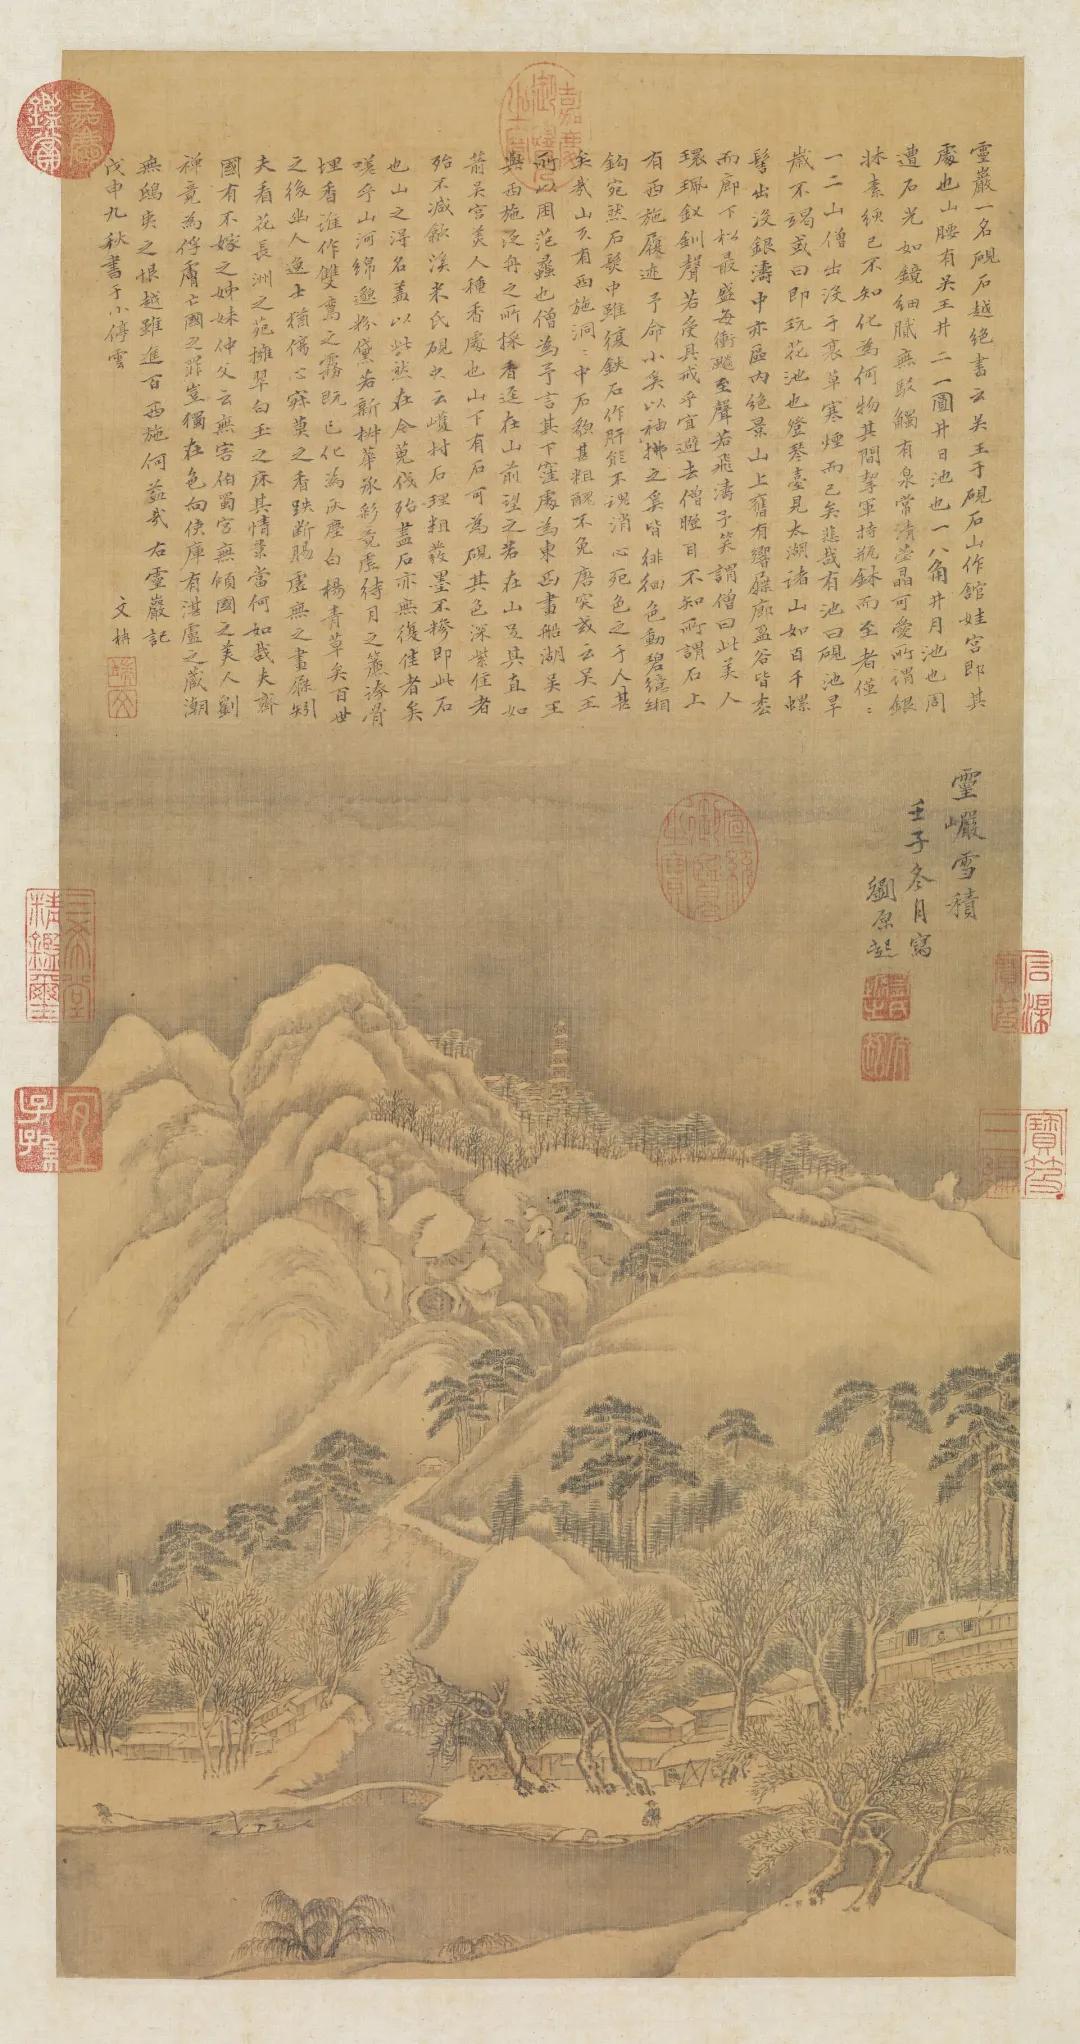 靈巖一名硯石越絕書云吳王于硯石山作館娃宮即其
處也山腰有吳王井二一圓井日池也一八角井月池也周
遭石光如鏡細膩無駁觸有泉常清瑩晶可愛所謂銀
牀素綆已不知化為何物其間挈軍持瓶鉢而至者僅〻
一二山僧出沒于衰草寒煙而已矣悲哉有池曰硯池旱
歲不竭或曰即玩花池也登琴臺見太湖諸山如百千螺
髻出沒銀濤中亦區內絕景山上舊有響屧廊盈谷皆松
而廊下松最盛每衝飈至聲若飛濤予笑謂僧曰此美人
環珮釵釧聲若受具戒乎宜避去僧瞠目不知所謂石上
有西施履迹予命小奚以袖拂之奚皆徘徊色動碧繶緗
鈎宛然石髮中雖復鉄石作肝能不魂消心死色之于人甚
矣哉山頂有西施洞〻中石貌甚粗醜不免唐突或云吳王
所以囚范蠡也僧為予言其下窪處為東西畫船湖吳王
與西施泛舟之所採香逕在山前望之若在山足其直如
箭吳宮美人種香處也山下有石可為硯其色深紫佳者
殆不減歙溪米氏硯史云蠖村石理粗發墨不糝即此石
也山之得名蓋以此然在今蒐伐殆盡石亦無復佳者矣
嗟乎山河綿邈粉黛若新椒華沉彩竟虛待月之簾誇骨
埋香誰作雙鸞之霧既已化為灰塵白楊青草矣百世
之後幽人逸士猶傷心寂莫之香趺斷腸虛無之畫屧矧
夫看花長洲之苑擁翠白玉之床其情景當何如哉夫齊
國有不嫁之姊妹仲父云無害伯蜀宮無傾國之美人劉
禪竟為俘虜亡國之罪豈獨在色向使庫有湛盧之藏潮
無鴟夷之恨越雖進百西施何益哉 右靈巖記
戊申九秋書于小停雲
文枏
靈巖雪積
壬子冬月寫
劉原起
嘉慶鑒賞
嘉慶御覽之寶
宣統御覽之寶
三希堂精鑑璽
宜子孫
石渠寶笈
寶笈三編